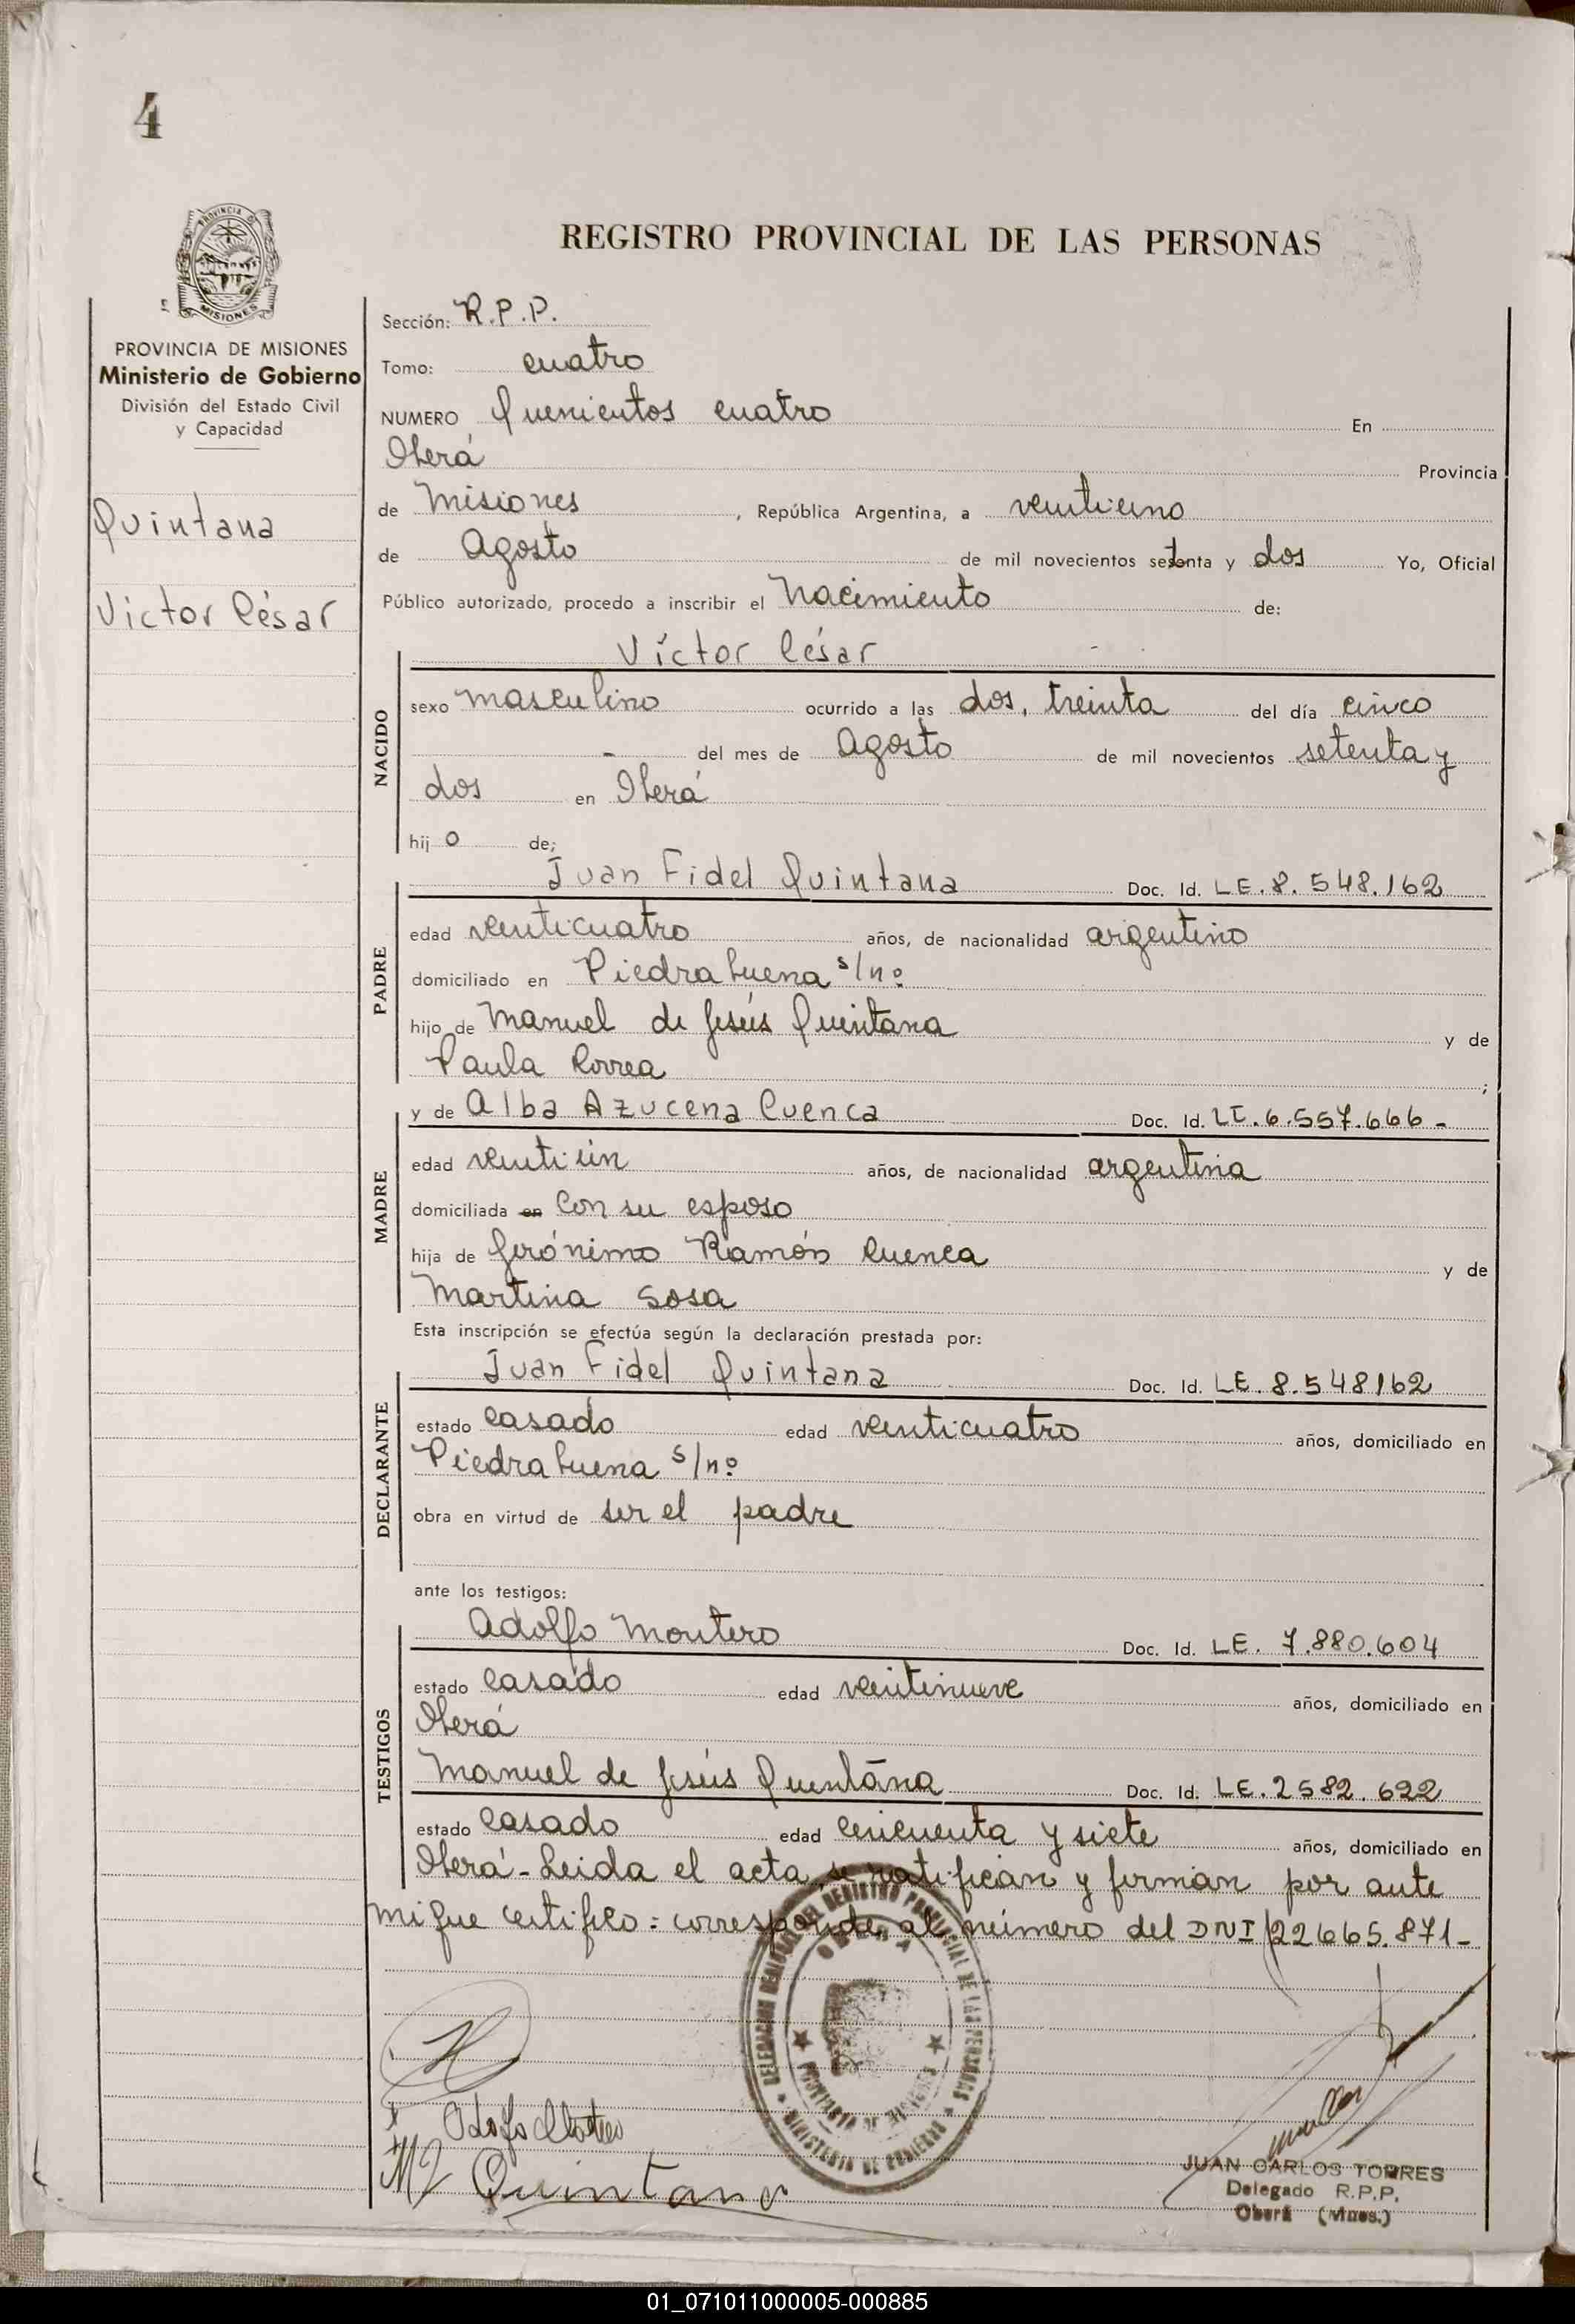 4
PROVINCIA DE
MISIONES
REGISTRO PROVINCIAL DE LAS PERSONAS
PROVINCIA DE MISIONES
Ministerio de Gobierno
División del Estado Civil
y Capacidad
Quintana
Víctor César
Sección: R.P.P.
Tomo: cuatro
NUMERO Quinientos cuatro En
Oberá Provincia
de Misiones, República Argentina, a veintiuno
de Agosto de mil novecientos setenta y dos Yo, Oficial
Público autorizado, procedo a inscribir el Nacimiento de:
Víctor César -
NACIDO
sexo masculino ocurrido a las dos, treinta del día cinco
- del mes de Agosto de mil novecientos setenta y
dos en Oberá
hijo de;
PADRE
Juan Fidel Quintana Doc. Id. LE. 8.548.162
edad venticuatro años, de nacionalidad argentino
domiciliado en Piedrabuena s/nº
hijo de Manuel de Jesús Quintana y de
Paula Correa ;
MADRE
y de Alba Azucena Cuenca Doc. Id. LC. 6.557.666 -
edad ventiún años, de nacionalidad argentina
domiciliada en Con su esposo
hija de Jerónimo Ramón Cuenca y de
Martina Sosa
Esta inscripción se efectúa según la declaración prestada por:
DECLARANTE
Juan Fidel Quintana Doc. Id. LE. 8.548162
estado Casado edad venticuatro años, domiciliado en
Piedrabuena s/nº
obra en virtud de ser el padre
ante los testigos:
TESTIGOS
Adolfo Montero Doc. Id. LE. 7.880.604
estado Casado edad veintinueve años, domiciliado en
Oberá
Manuel de Jesús Quintana Doc. Id. LE. 2582.622
estado Casado edad cincuenta y siete años, domiciliado en
Oberá - Leida el acta, se ratifican y firman por ante
mi que certifico = corresponde al número del DNI 22665.871 -
DELEGACION REGIONAL DEL REGISTRO PROVINCIAL DE LAS PERSONAS
OBERA
PROVINCIA DE MISIONES
MINISTERIO DE GOBIERNO
M J Quintana
JUAN CARLOS TORRES
Delegado R.P.P.
Oberá (Mnes.)
01_071011000005-000885